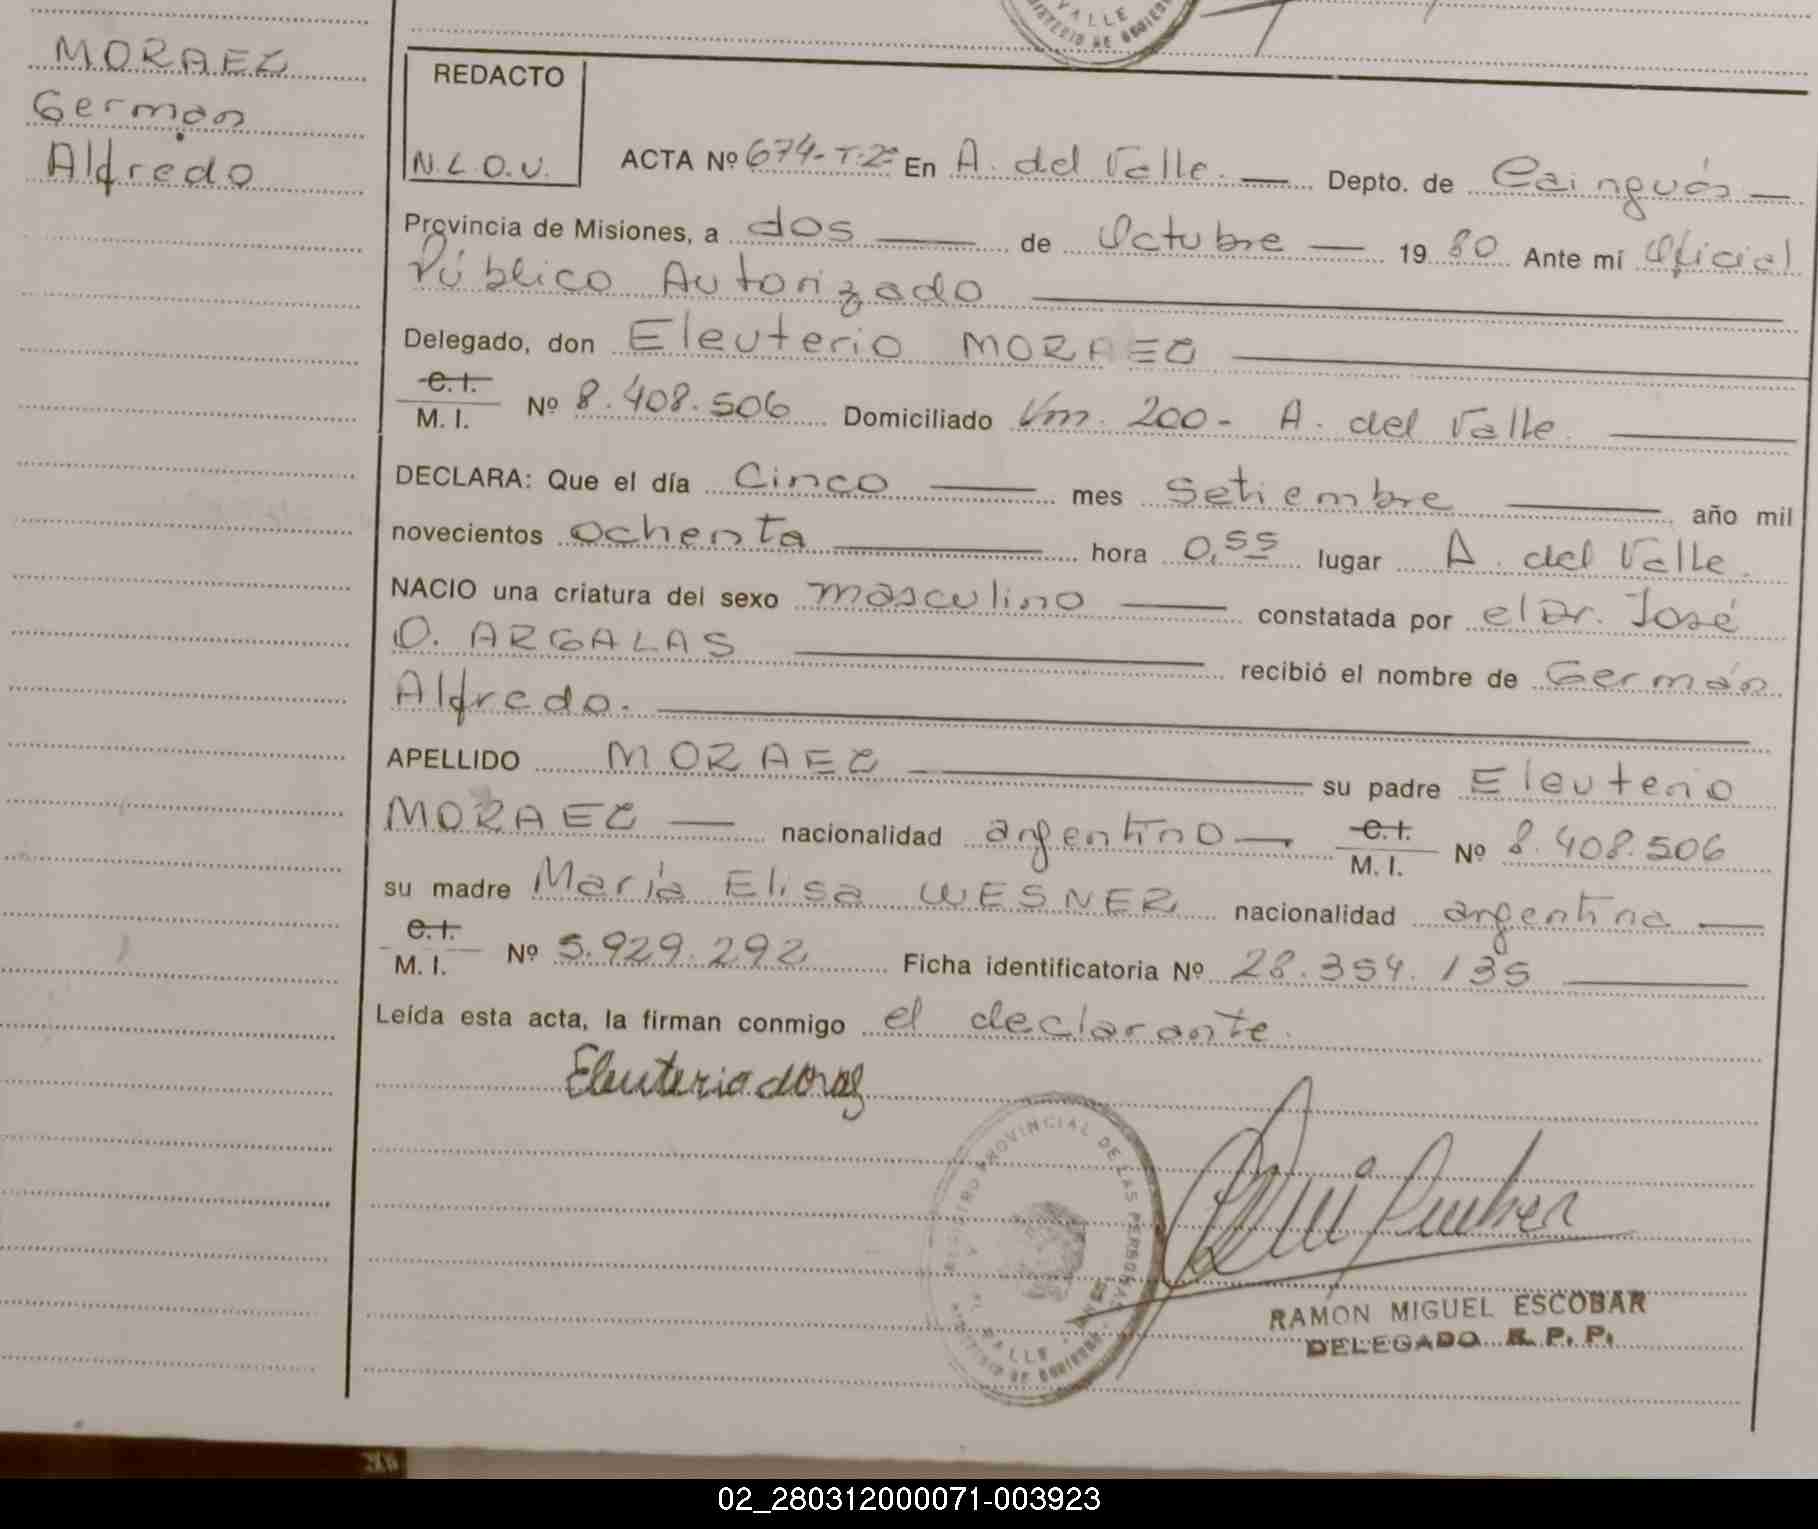 VALLE
MINISTERIO DE GOBIERNO
MORAEZ
Germán
Alfredo
REDACTO
N.L.O.V.
ACTA Nº 674-T:2º En A. del Valle. — Depto. de Cainguás —
Provincia de Misiones, a dos — de Octubre — 19 80 Ante mí Oficial
Público Autorizado
Delegado, don Eleuterio MORAEZ
C.I.
M. I. Nº 8.408.506 Domiciliado Km. 200- A. del Valle.
DECLARA: Que el día Cinco — mes Setiembre — año mil
novecientos ochenta — hora 0,55 lugar A. del Valle.
NACIO una criatura del sexo masculino — constatada por el Dr. José
O. ARGALAS — recibió el nombre de Germán
Alfredo.
APELLIDO MORAEZ — su padre Eleuterio
MORAEZ — nacionalidad argentino — C.I. M. I. Nº 8.408.506
su madre María Elisa WESNER nacionalidad argentina —
C.I.
M. I. Nº 5.929.292 Ficha identificatoria Nº 28.354.135
Leída esta acta, la firman conmigo el declarante.
Eleuterio
REGISTRO PROVINCIAL DE LAS PERSONAS
VALLE
MINISTERIO DE GOBIERNO
RAMON MIGUEL ESCOBAR
DELEGADO R. P. P.
02_280312000071-003923